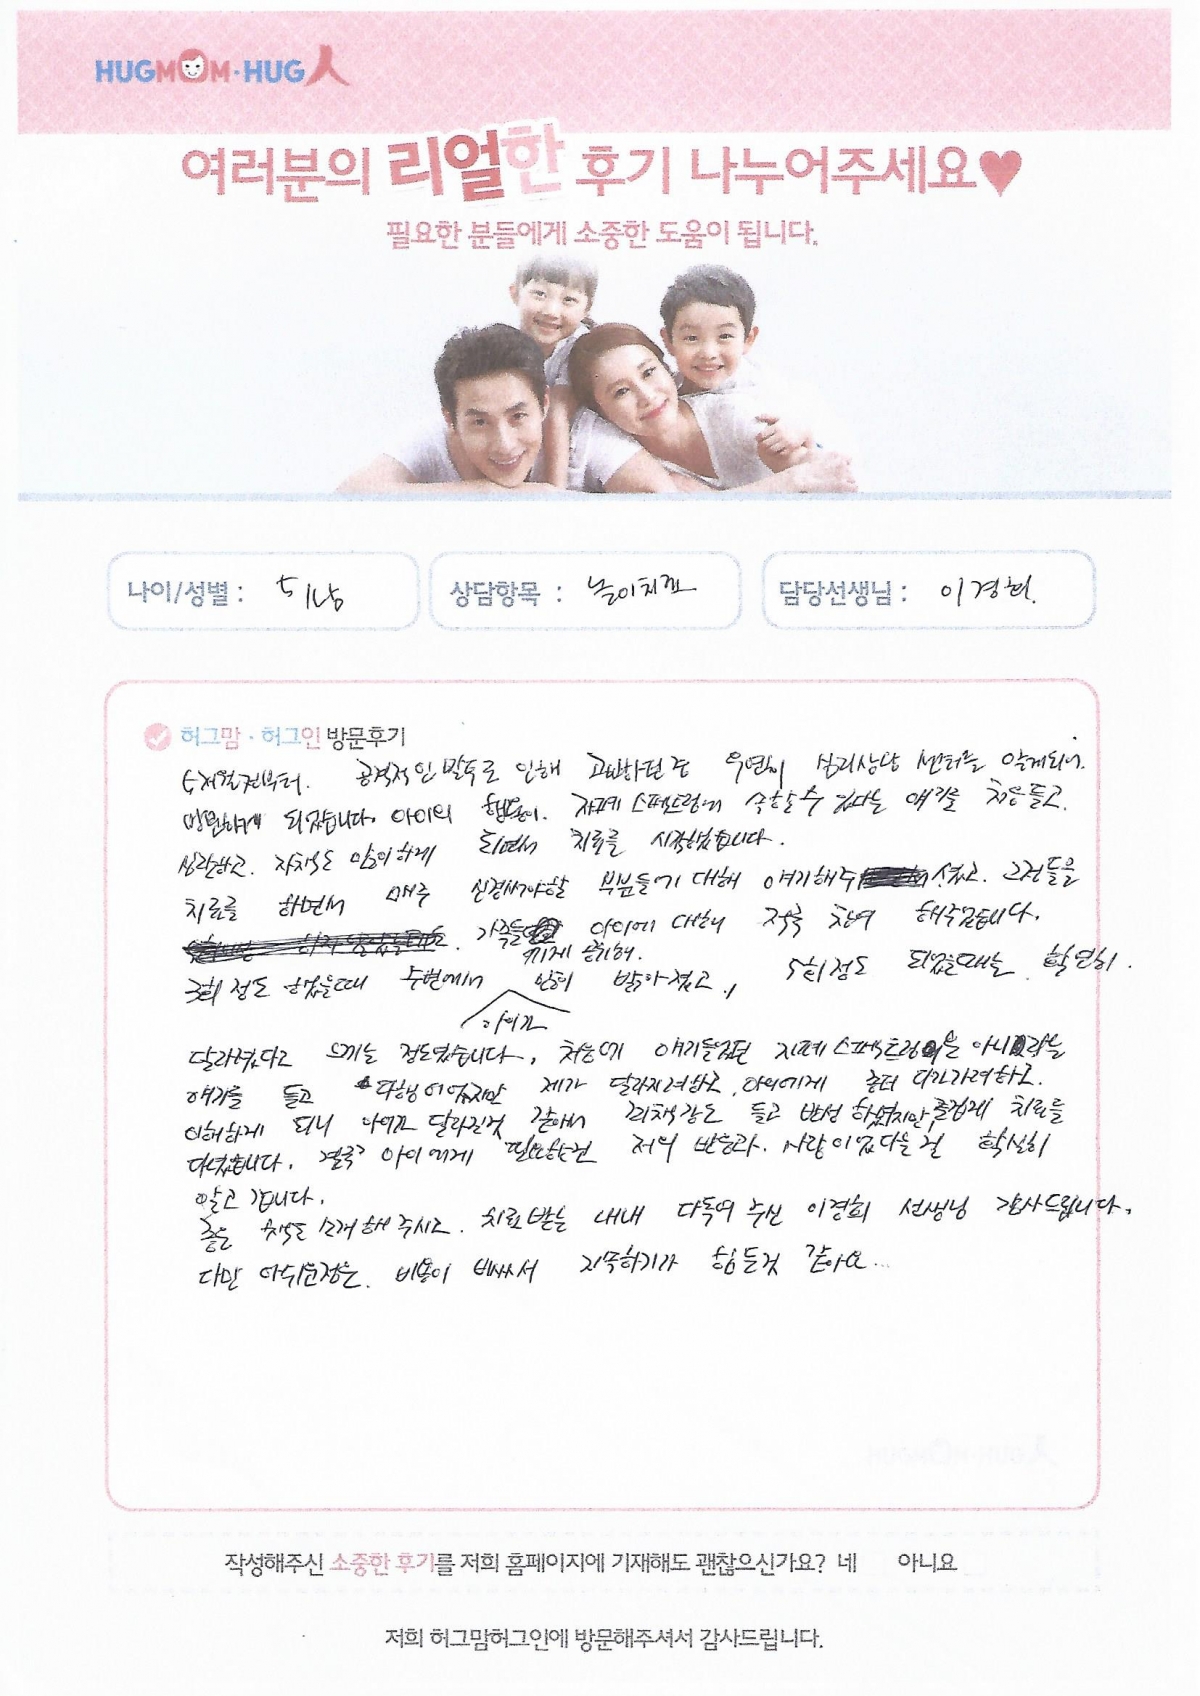 HUGMOM·HUG人
여러분의 리얼한 후기 나누어주세요♥
필요한 분들에게 소중한 도움이 됩니다.
나이/성별 : 5/남
상담항목 : 놀이치료
담당선생님 : 이경희.
허그맘 · 허그인 방문후기
5개월전부터. 공격적인 발톡로 인해 고민하던 중 우연히 심리상담 센터를 알게되어.
방문하게 되었습니다. 아이의 행동이. 자폐 스펙트럼에 속할수 있다는 얘기를 처음 듣고.
상관하고. 자책도 많이하게 되면서 치료를 시작했습니다.
치료를 하면서 매주 신경써야할 부분들에 대해 얘기해주셨고. 그런것들을
가족들에게 공유해. 아이에 대해 적극 참여 해주었습니다.
3회 정도 했을때 주변에서 아이가 많이 밝아졌고, 5회정도 되었을때는 확연히.
달라졌다고 느끼는 정도였습니다. 처음에 얘기들었던 자폐스펙트럼은 아니라는
얘기를 듣고 다행이었지만 제가 달라지려하고, 아이에게 좀더 다가가려하고.
이해하게 되니 아이가 달라진것 같아서 죄책감도 들고 반성 하였지만, 즐겁게 치료를
다녔습니다. 결국 아이에게 필요한건 저의 반응과. 사랑이었다는 걸 확실히
알고 갑니다.
좋은 책도 소개해 주시고. 치료받는 내내 다독여 주신 이경희 선생님 감사드립니다.
다만 아쉬운점은. 비용이 비싸서 지속하기가 힘든것 같아요...
작성해주신 소중한 후기를 저희 홈페이지에 기재해도 괜찮으신가요? 네 아니요
저희 허그맘허그인에 방문해주셔서 감사드립니다.